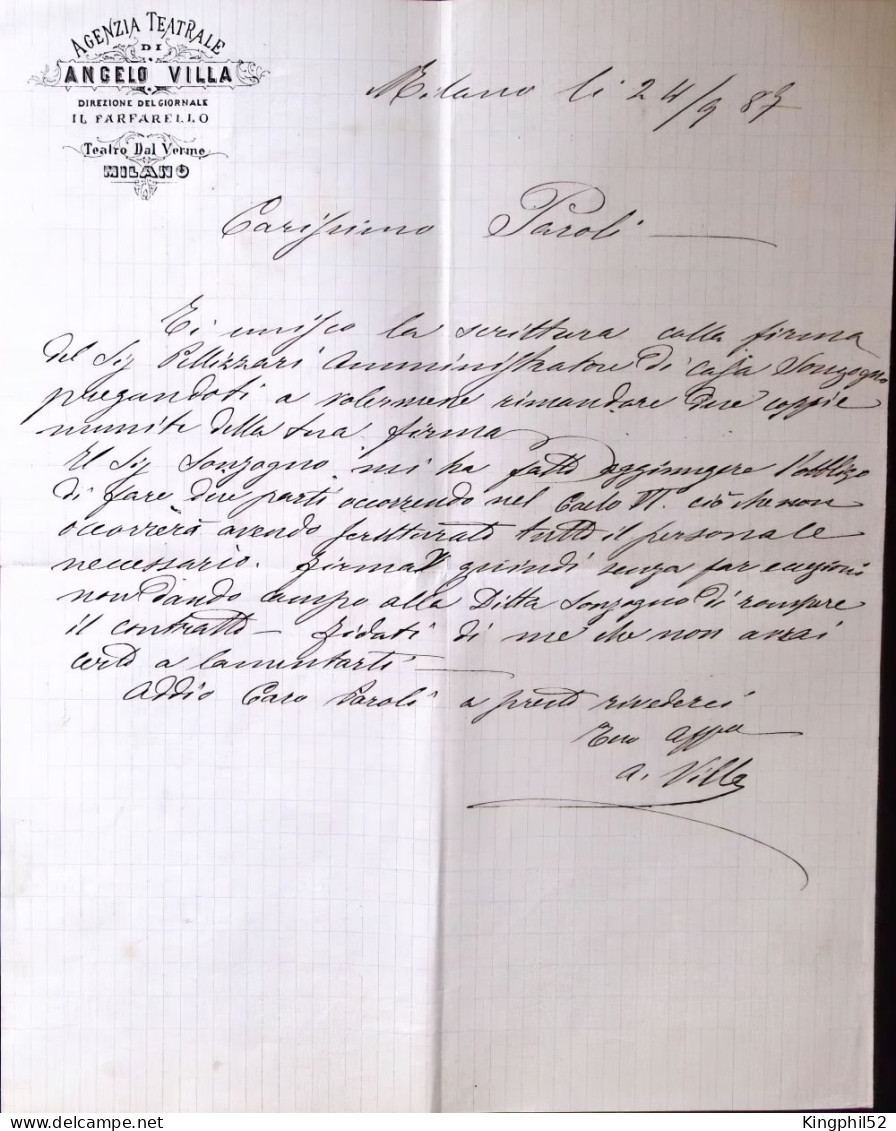 AGENZIA TEATRALE
DI
ANGELO VILLA
DIREZIONE DEL GIORNALE
IL FARFARELLO
Teatro Dal Verme
MILANO
Milano li 24/9 87
Carissimo Paroli
Ti unisco la scrittura colla firma
del Sig Pellizzari Amministratore di Casa Sonzogno
pregandoti a volermene rimandare due coppie
munite della tua firma
Il Sig Sonzogno mi ha fatto aggiungere l'obbligo
di fare due parti occorrendo nel Carlo VI. ciò che non
occorrerà avendo scritturato tutto il personale
necessario. Firma quindi senza far eccezioni
non dando campo alla Ditta Sonzogno di rompere
il contratto – fidati di me che non avrai
certo a lamentarti
Addio Caro Paroli a presto rivederci
Tuo Affmo
A. Villa
Kingphil52